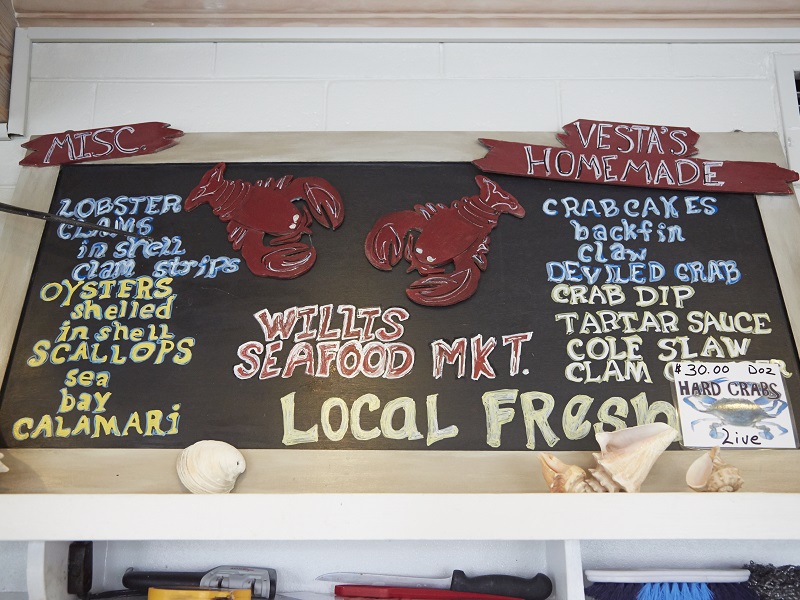 MISC.
LOBSTER
CLAMS
in shell
clam strips
OYSTERS
shelled
in shell
SCALLOPS
sea
bay
CALAMARi
WILLIS
SEAFOOD MKT.
LOCAL FResh
VESTA'S
HOMEMADE
CRABCAKES
backfin
claw
DEVILED CRAB
CRAB DIP
TARTAR SAUCE
COLE SLAW
CLAM
$30.00 Doz
HARD CRABS
Live